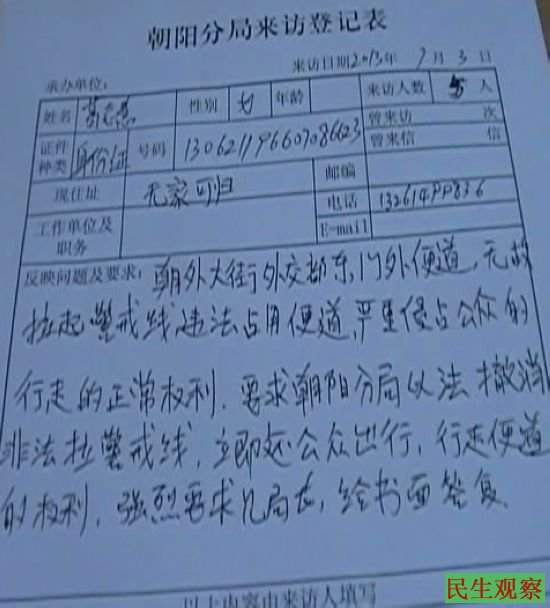 朝阳分局来访登记表
来访日期2013年 7月 3日
承办单位:
姓名 性别 女 年龄 来访人数 人
证件种类 身份证 号码 曾来访 次
曾来信 信
现住址 无家可归 邮编
电话
工作单位及职务 E-mail
反映问题及要求: 朝外大街外交部东门外便道,无故
拉起警戒线违法占用便道,严重侵占公众的
行走的正常权利.要求朝阳分局以法撤消
非法拉警戒线,立即还公众出行,行走便道
的权利,强烈要求 局长,给书面答复
以上内容由来访人填写
民生观察